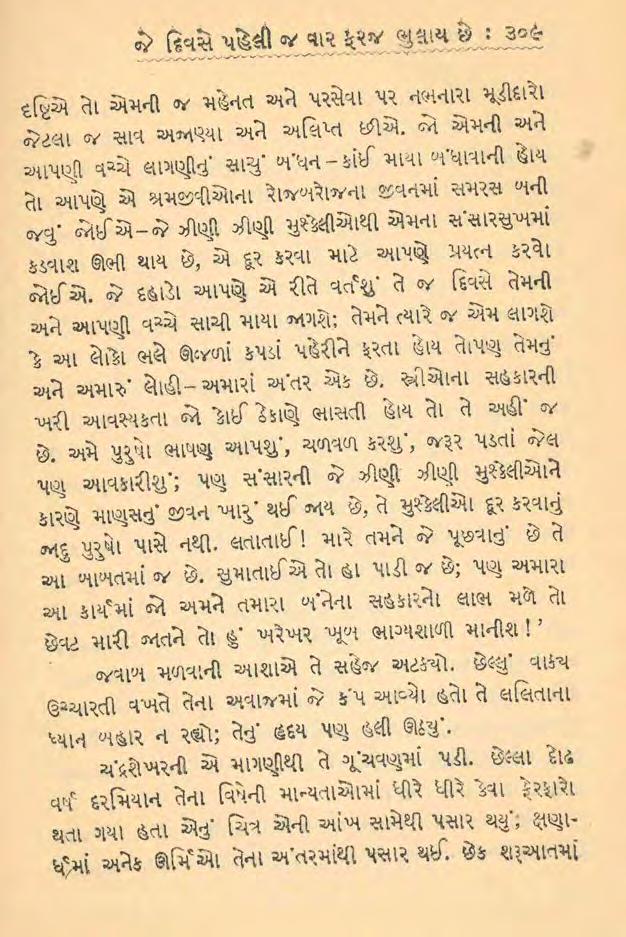 જે દિવસે પહેલી જ વાર ફરજ ભુલાય છે : ૩૦૯
દૃષ્ટિએ તો એમની જ મહેનત અને પરસેવા પર નભનારા મૂડીદારો
જેટલા જ સાવ અજાણ્યા અને અલિપ્ત છીએ. જો એમની અને
આપણી વચ્ચે લાગણીનું સાચું બંધન – કાંઈ માયા બંધાવાની હોય
તો આપણે એ શ્રમજીવીઓના રોજબરોજના જીવનમાં સમરસ બની
જવું જોઈએ–જે ઝીણી ઝીણી મુશ્કેલીઓથી એમના સંસારસુખમાં
કડવાશ ઊભી થાય છે, એ દૂર કરવા માટે આપણે પ્રયત્ન કરવો
જોઈએ. જે દહાડો આપણે એ રીતે વર્તશું તે જ દિવસે તેમની
અને આપણી વચ્ચે સાચી માયા જાગશે; તેમને ત્યારે જ એમ લાગશે
કે આ લોકો ભલે ઊજળાં કપડાં પહેરીને ફરતા હોય તોપણ તેમનું
અને અમારું લોહી – અમારાં અંતર એક છે. સ્ત્રીઓના સહકારની
ખરી આવશ્યકતા જો કોઈ ઠેકાણે ભાસતી હોય તો તે અહીં જ
છે. અમે પુરુષો ભાષણ આપશું, ચળવળ કરશું, જરૂર પડતાં જેલ
પણ આવકારીશું; પણ સંસારની જે ઝીણી ઝીણી મુશ્કેલીઓને
કારણે માણસનું જીવન ખારું થઈ જાય છે, તે મુશ્કેલીઓ દૂર કરવાનું
જાદુ પુરુષો પાસે નથી. લતાતાઈ! મારે તમને જે પૂછવાનું છે તે
આ બાબતમાં જ છે. સુમાતાઈએ તો હા પાડી જ છે; પણ અમારા
આ કાર્યમાં જો અમને તમારા બંનેના સહકારનો લાભ મળે તો
છેવટ મારી જાતને તો હું ખરેખર ખૂબ ભાગ્યશાળી માનીશ!’
જવાબ મળવાની આશાએ તે સહેજ અટક્યો. છેલ્લું વાક્ય
ઉચ્ચારતી વખતે તેના અવાજમાં જે કંપ આવ્યો હતો તે લલિતાના
ધ્યાન બહાર ન રહ્યો; તેનું હૃદય પણ હલી ઊઠ્યું.
ચંદ્રશેખરની એ માગણીથી તે ગૂંચવણમાં પડી. છેલ્લા દોઢ
વર્ષ દરમિયાન તેના વિષેની માન્યતાઓમાં ધીરે ધીરે કેવા ફેરફારો
થતા ગયા હતા એનું ચિત્ર એની આંખ સામેથી પસાર થયું; ક્ષણા-
ર્ધમાં અનેક ઊર્મિઓ તેના અંતરમાંથી પસાર થઈ. છેક શરૂઆતમાં